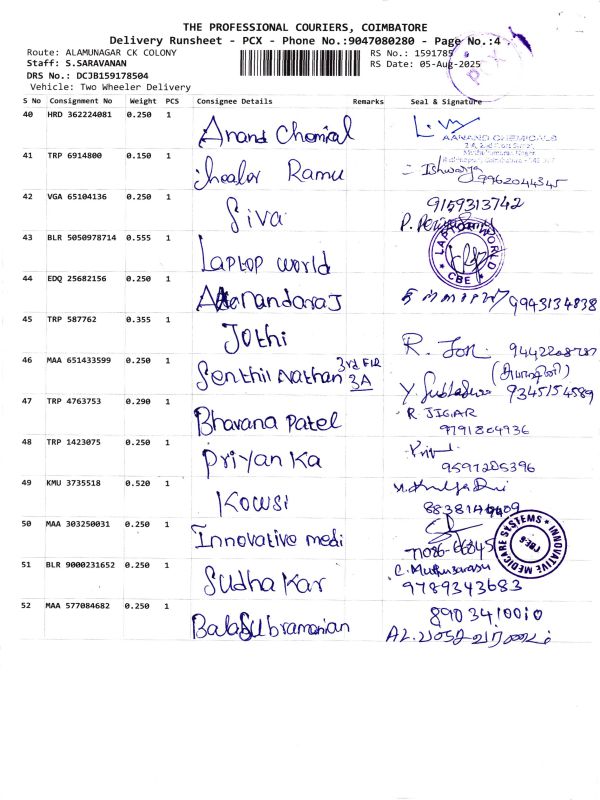 THE PROFESSIONAL COURIERS, COIMBATORE
Delivery Runsheet - PCX - Phone No.:9047080280 - Page No.:4
Route: ALAMUNAGAR CK COLONY RS No.: 1591785
Staff: S.SARAVANAN RS Date: 05-Aug-2025
DRS No.: DCJB159178504
Vehicle: Two Wheeler Delivery
PCX
S No Consignment No Weight PCS Consignee Details Remarks Seal & Signature
40 HRD 362224081 0.250 1 Anand Chemical
AANAND CHEMICALS
41 TRP 6914800 0.150 1 Ramu Ishwarya
9962044345
42 VGA 65104136 0.250 1 Siva 9159313742
43 BLR 5050978714 0.555 1 Laptop world
LAPTOP WORLD * CBE *
44 EDQ 25682156 0.250 1 9943134838
45 TRP 587762 0.355 1 Jothi
R.
46 MAA 651433599 0.250 1 Senthil Nathan 3rd FLR 3A
9345154589
47 TRP 4763753 0.290 1 Bhavana Patel R JIGAR
9791804936
48 TRP 1423075 0.250 1 Priyanka
9597205396
49 KMU 3735518 0.520 1 Kowsi
50 MAA 303250031 0.250 1 Innovative medi
INNOVATIVE MEDICARE SYSTEMS * CBE *
51 BLR 9000231652 0.250 1 Sudhakar C. Muthusarasu
9789343683
52 MAA 577084682 0.250 1 Balasubramanian 8903410010